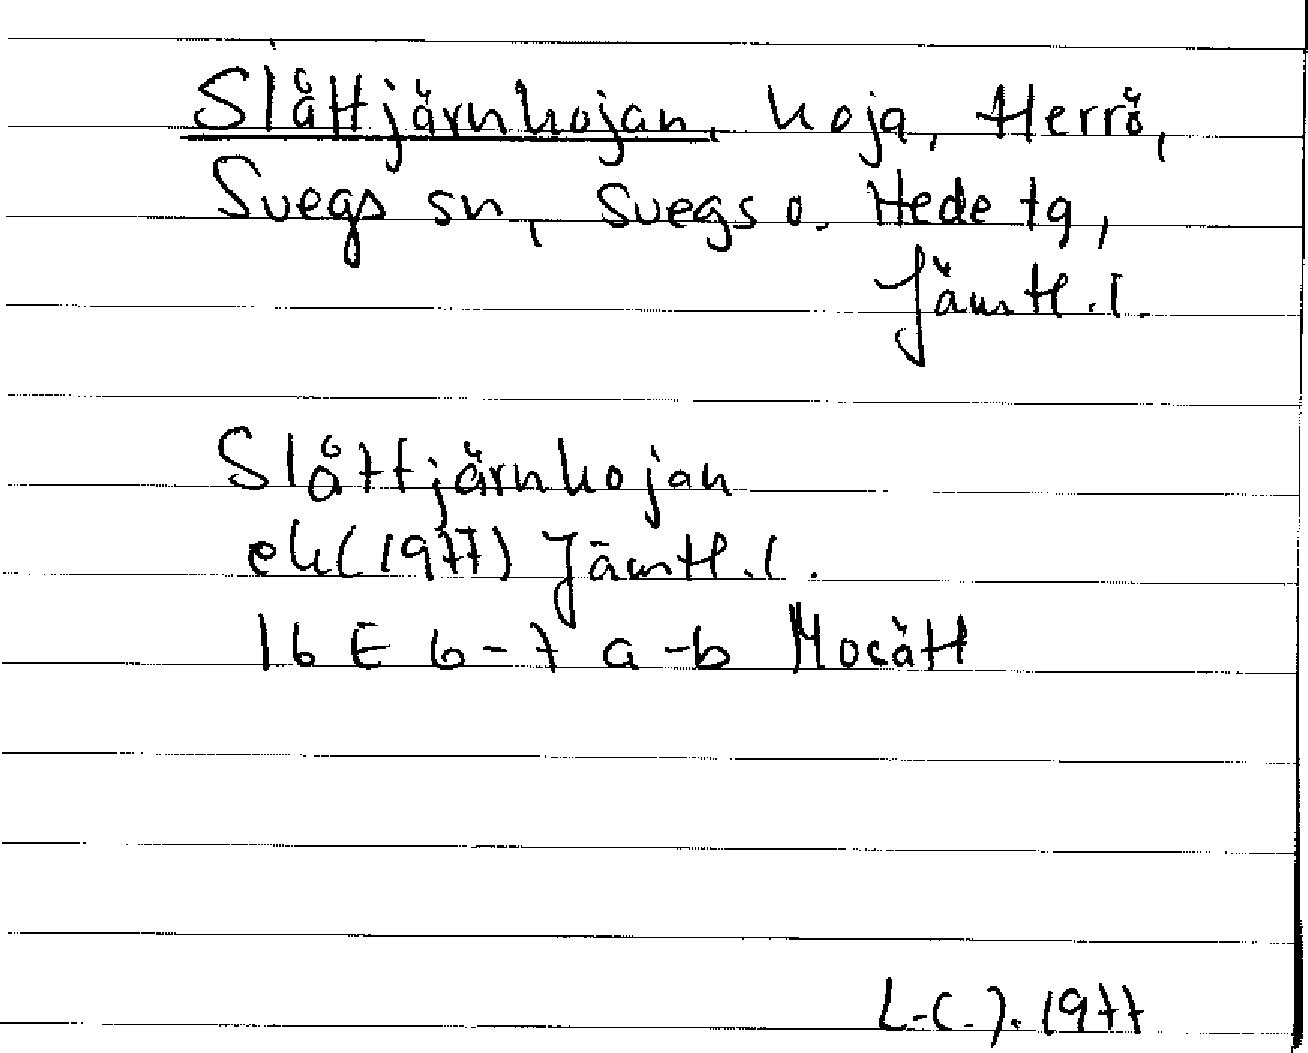 Slåttjärnkojan, koja, Herrö,
Svegs sn, Svegs o. Hede tg,
Jämtl. l.
Slåttjärnkojan
ek (1977) Jämtl. l.
16 E 6-7 a-b Mocått
L-C. J. 1977